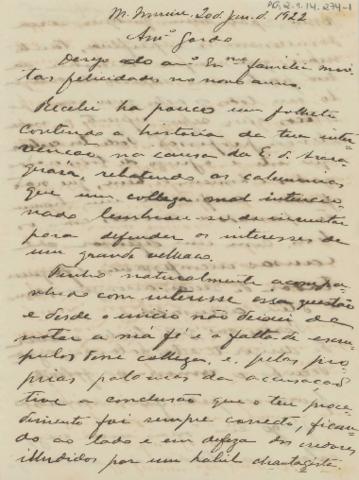 PG.2.9.14.274-1
20 d. Jan. d. 1922
Amº Gordo
Desejo ao amº Exmª familia mui
tas felicidades no novo anno.
Recebi ha pouco um folheto
contendo a historia da tua inter
venção na causa da E. F. Arara
quara, rebatendo as calumnias
que um collega mal intencio
nado lembrou-se de inventar
para defender os interesses de
um grande velhaco.
Tenho naturalmente acompa
nhado com interesse essa questão
e desde o inicio não deixei de
notar a má fé e a falta de escru
pulos desse collega, e, pelas pro
prias palavras da accusação
tive a conclusão que o teu proce
dimento foi sempre correcto, fican
do ao lado e em defeza dos credores
illudidos por um habil chantagista.